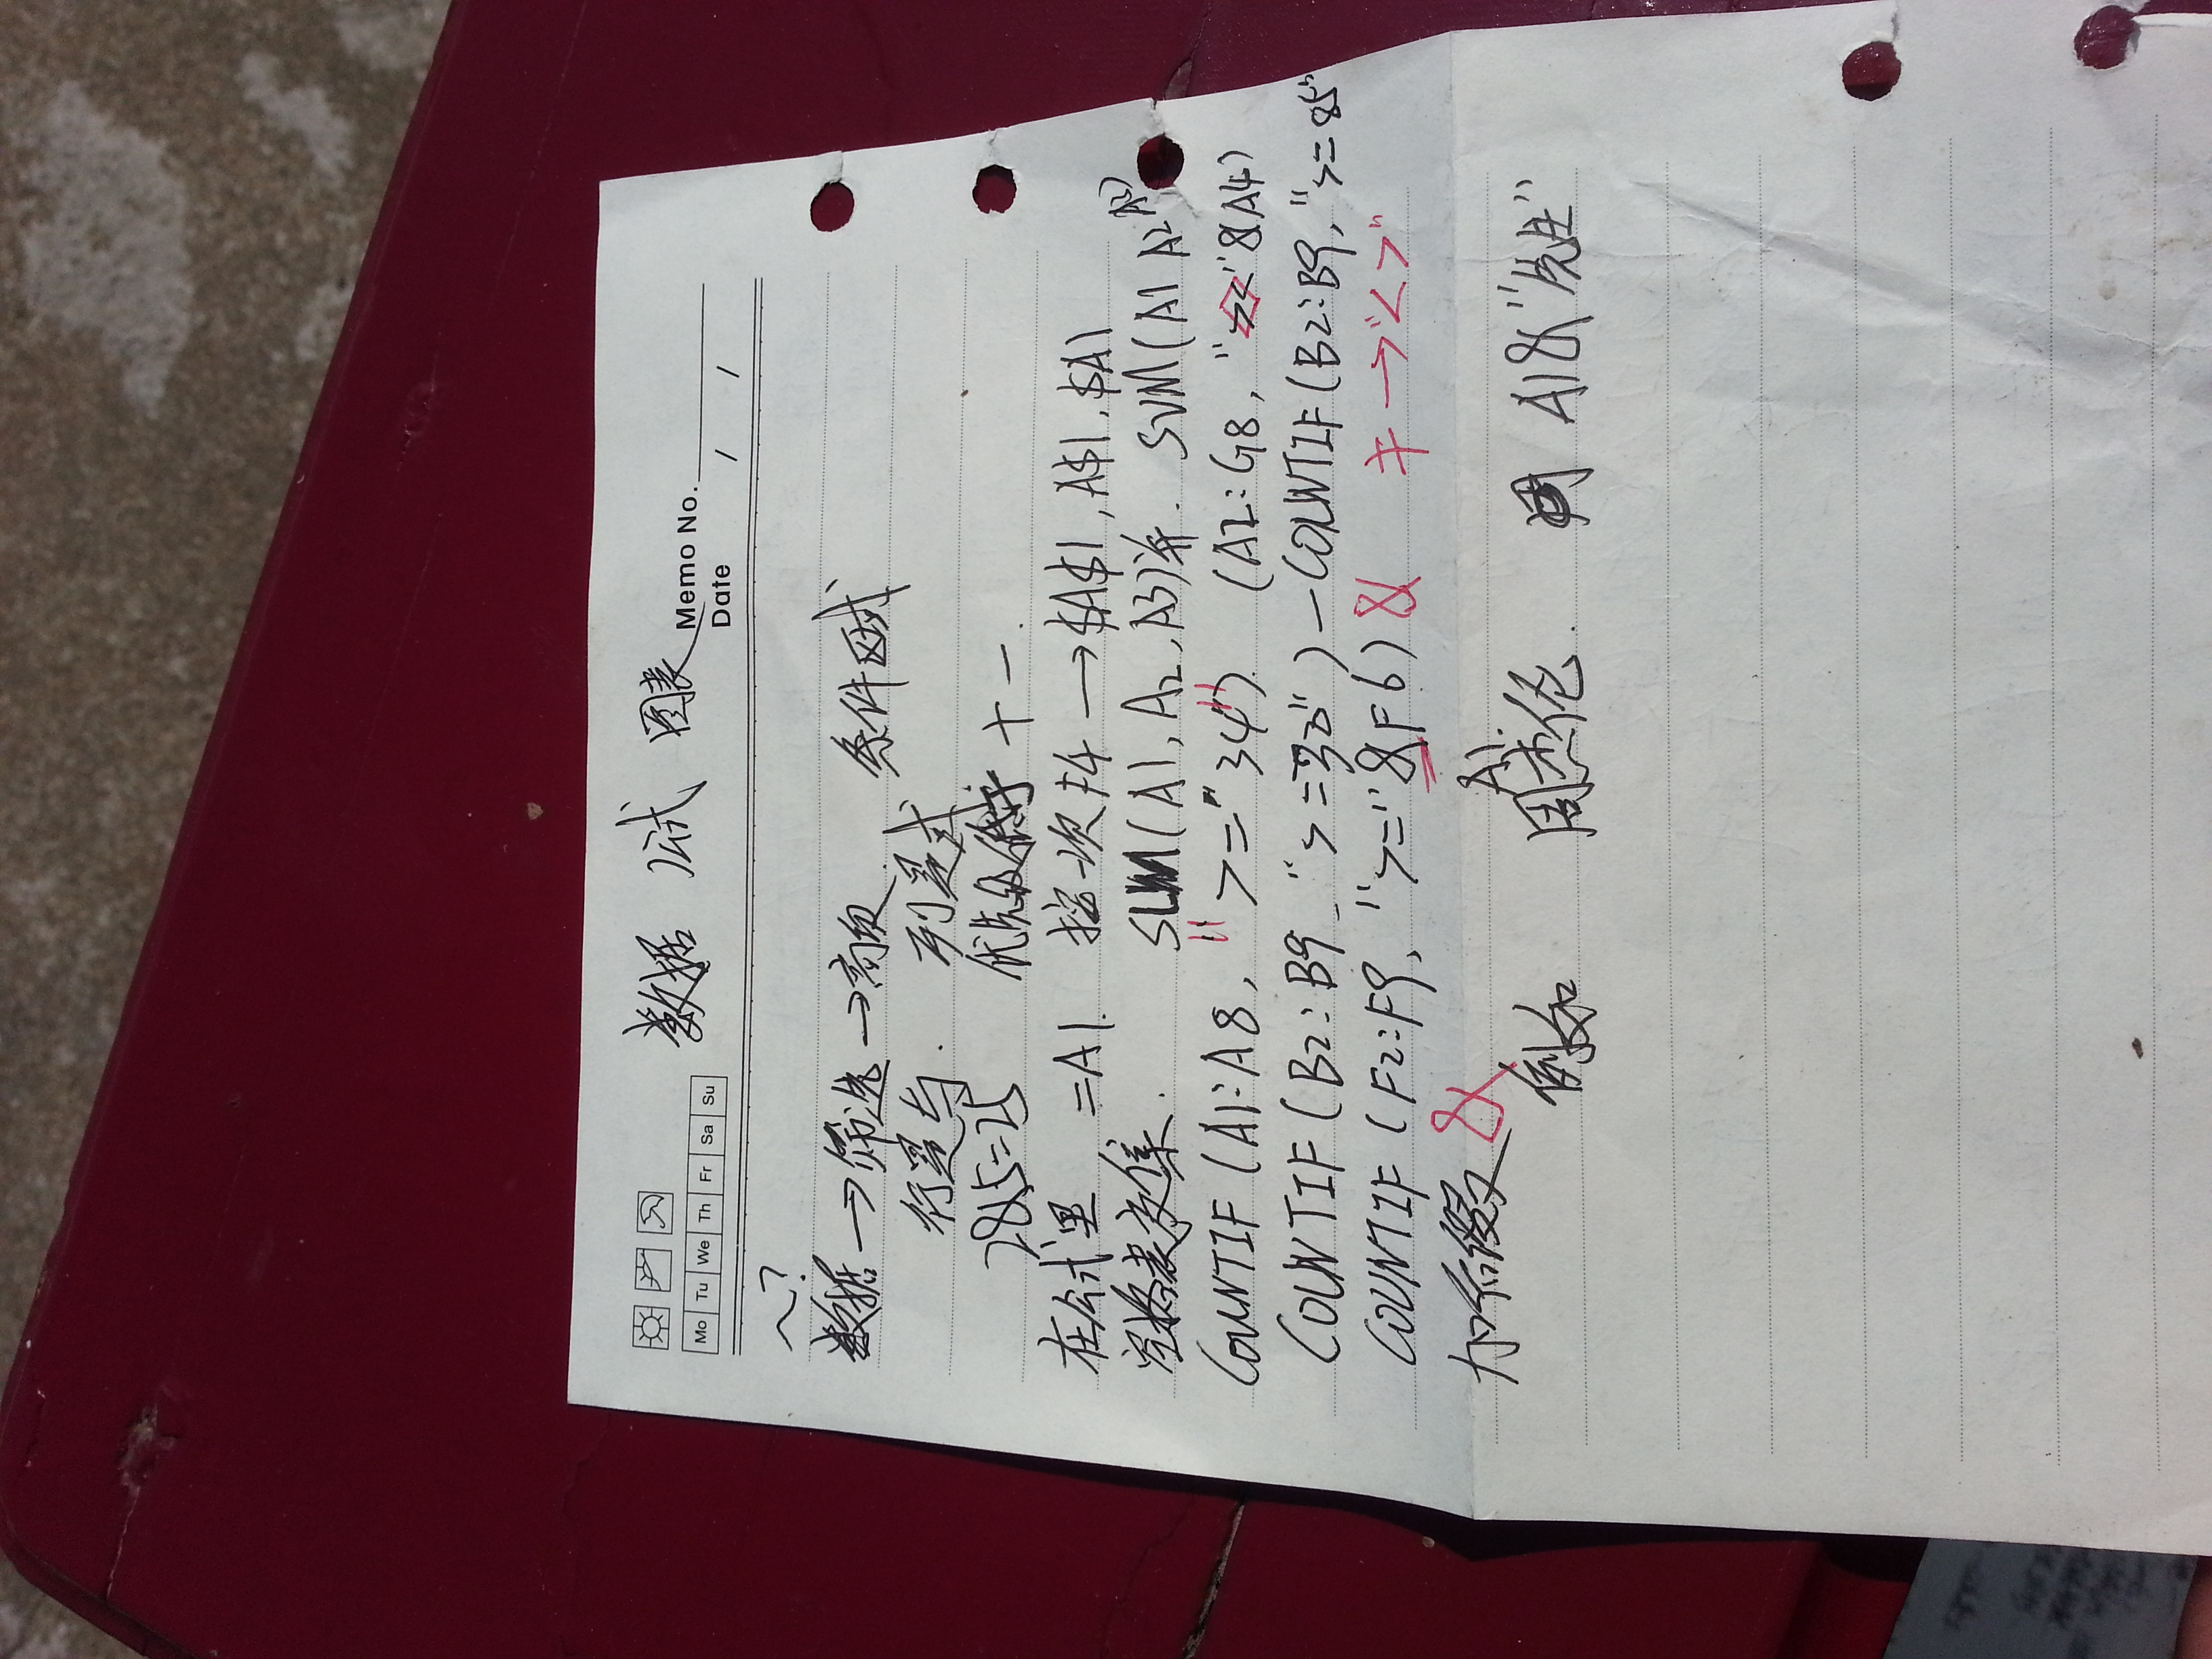 数据 公式 图表
Memo No.
Mo Tu We Th Fr Sa Su
Date / /
~?
数据→筛选→高级. 条件区域
行是与. 列是或
2&5=25 优先级低于 + -.
在公式里 =A1. 按一次F4 →$A$1, A$1, $A1
空格表交集. SUM(A1, A2, A3)并. SUM(A1 A2 A3)
COUNTIF (A1:A8, ">="34"). (A2:G8, "<>"&A4)
COUNTIF (B2:B9, ">=30") - COUNTIF(B2:B9, ">=85"
COUNTIF (F2:F9, ">="&F6) & ≠→"<>"
加后缀 &
A1.
例如 周杰伦. 用 A1&"先生"